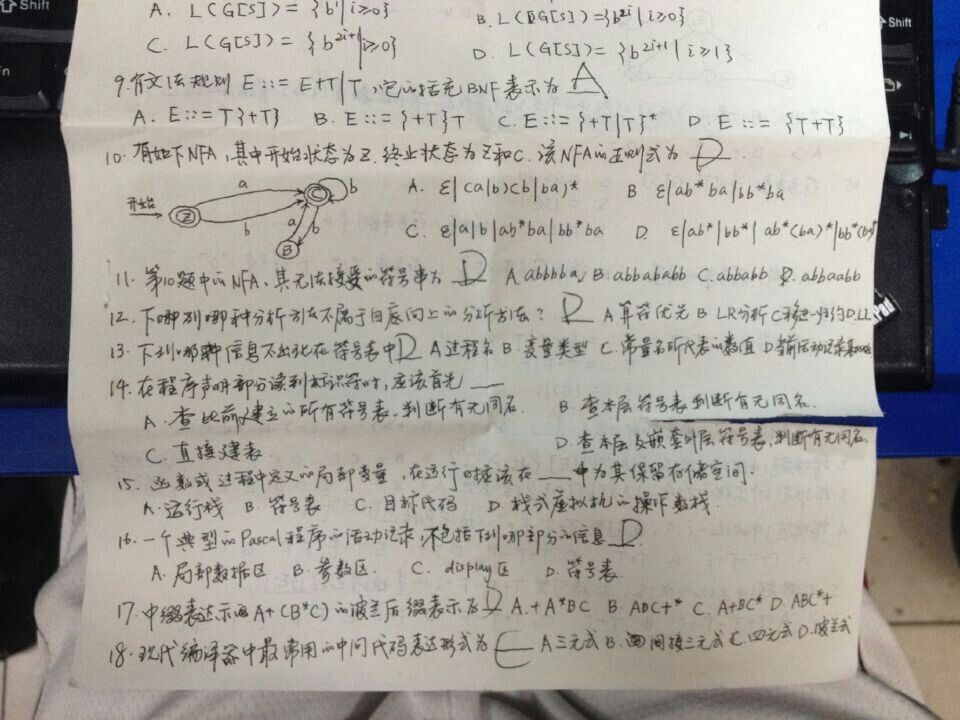 Shift
Shift
Fn
A. L(G[S]) = {b^i | i≥0}
B. L(G[S]) = {b^{2i} | i≥0}
C. L(G[S]) = {b^{2i+1} | i≥0}
D. L(G[S]) = {b^{2i+1} | i≥1}
9. 有文法规则 E::= E+T|T, 它的括充BNF表示为 A
A. E::= T{+T} B. E::= {+T}T C. E::= {+T|T}* D. E::= {T+T}
10. 有如下NFA, 其中开始状态为Z. 终止状态为Z和C. 该NFA的正则式为 D
开始 Z a b C b a b B
A. ε|(a|b)(b|ba)* B ε|ab*ba|bb*ba
C. ε|a|b|ab*ba|bb*ba D. ε|ab*|bb*|ab*(ba)*|bb*(ba)*
11. 第10题中的NFA, 其无法接受的符号串为 D A.abbbba, B abbababb C.abbabb D. abbaabb
12. 下哪列哪种分析方法不属于自底向上的分析方法? D A 算符优先 B LR分析 C 移进-归约 D.LL
13. 下列哪种信息不出现在符号表中 D A 过程名 B. 变量类型 C. 常量名所代表的数值 D 当前活动记录基地址
14. 在程序声明部分读到标识符时, 应该首先 ___
A. 查此前建立的所有符号表. 判断有无同名. B. 查本层符号表, 判断有无同名.
C. 直接建表 D. 查本层及嵌套外层符号表, 判断有无同名.
15. 函数或过程中定义的局部变量, 在运行时应该在 ___ 中为其保留存储空间.
A. 运行栈 B. 符号表 C. 目标代码 D 栈式虚拟机的操作数栈
16. 一个典型的Pascal程序的活动记录, 不包括下列哪部分的信息 D.
A. 局部数据区 B. 参数区. C. display区 D. 符号表.
17. 中缀表达示 A+(B*C) 的波兰后缀表示为 D A.+A*BC B. ABC+* C. A+BC* D. ABC*+
18. 现代编译器中最常用的中间代码表达形式为 C A 三元式 B. 间接三元式 C. 四元式 D. 波兰式